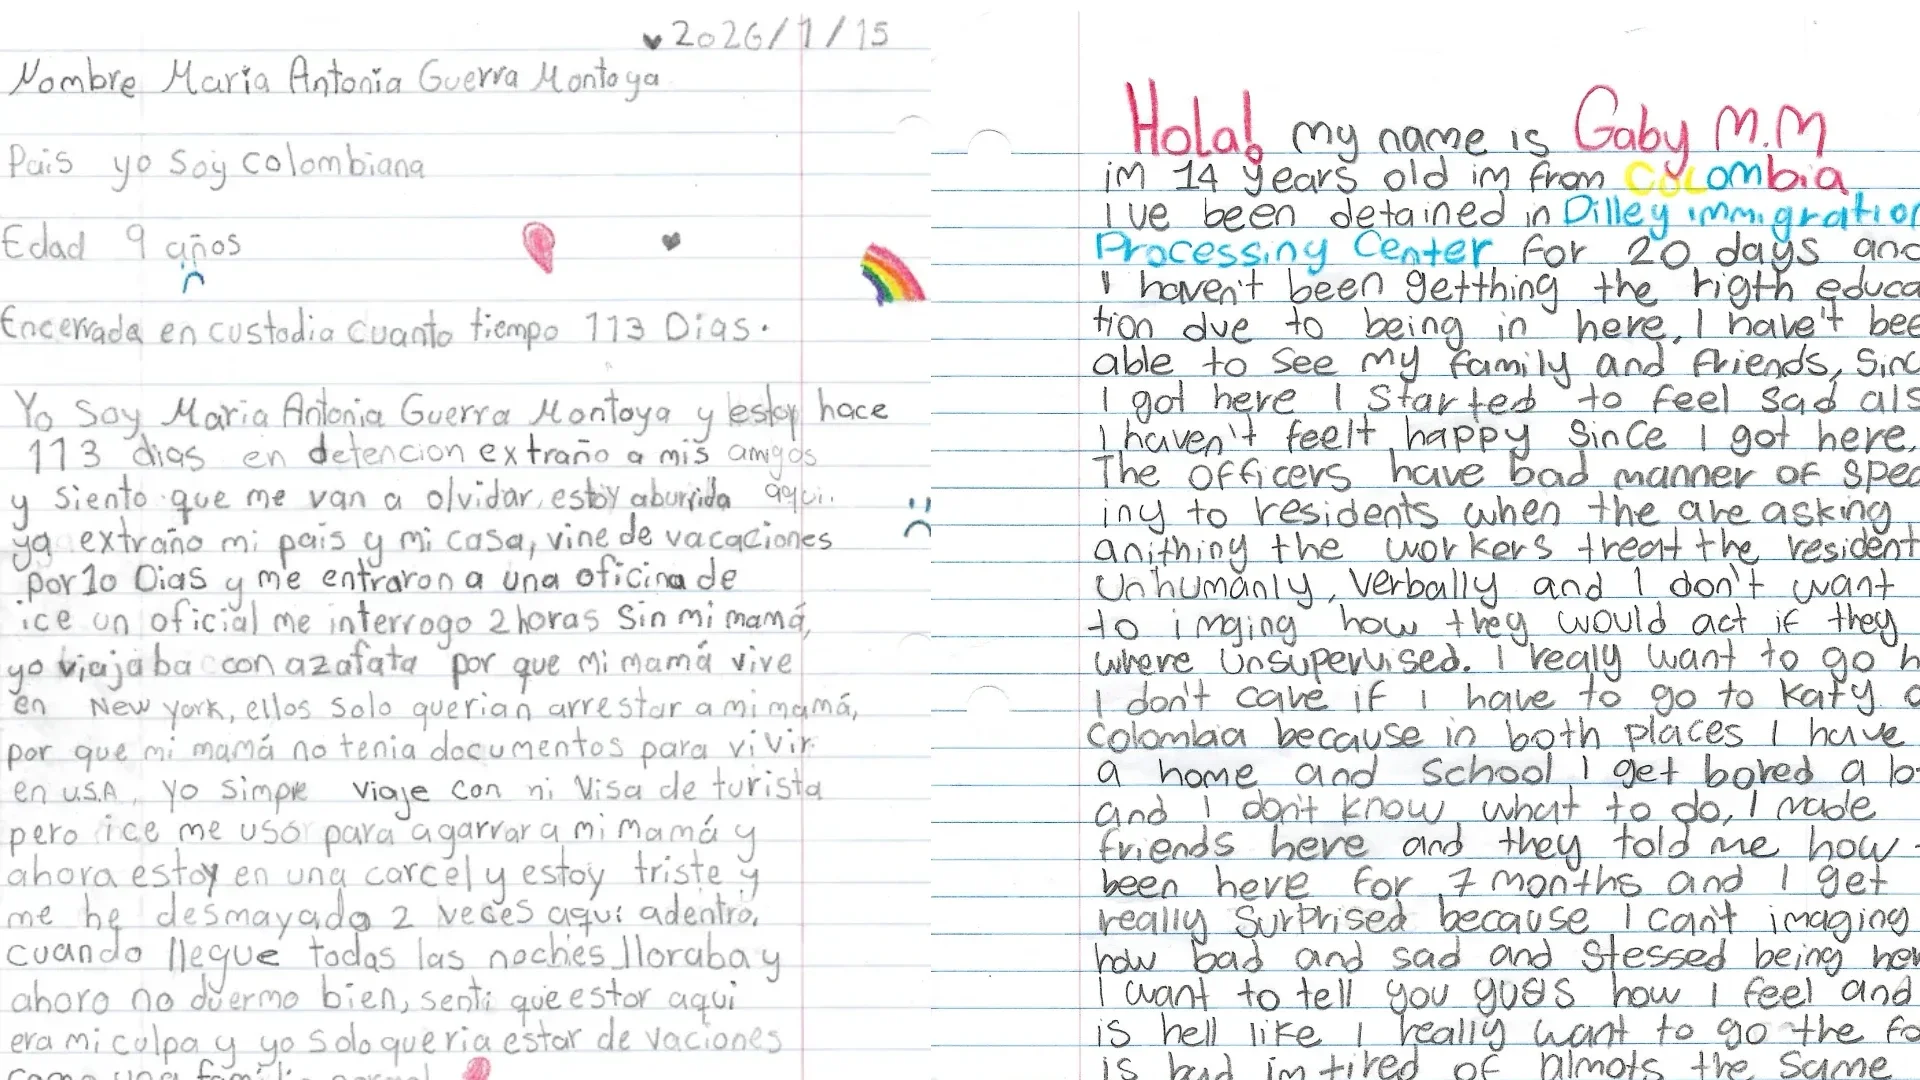 ♥2026/1/15
Nombre Maria Antonia Guerra Montoya
Pais yo soy colombiana
Edad 9 años
Encerrada en custodia cuanto tiempo 113 Dias.
Yo soy Maria Antonia Guerra Montoya y estoy hace
113 dias en detencion extraño a mis amigos
y siento que me van a olvidar, estoy aburrida aqui.
ya extraño mi pais y mi casa, vine de vacaciones
por 10 Dias y me entraron a una oficina de
ice un oficial me interrogo 2 horas Sin mi mamá,
yo viajaba con azafata por que mi mamá vive
en New york, ellos solo querian arrestar a mi mamá,
por que mi mamá no tenia documentos para vivir
en U.S.A, yo simpre viaje con mi Visa de turista
pero ice me uso para agarrar a mi mamá y
ahora estoy en una carcel y estoy triste y
me he desmayado 2 veces aquí adentro,
cuando llegue todas las noches lloraba y
ahora no duermo bien, senti que estar aqui
era mi culpa y yo solo queria estar de vaciones
como una familia normal
Hola! my name is Gaby M.M
im 14 years old im from COLombia
I've been detained in Dilley immigration
Processing Center for 20 days and
I haven't been getthing the rigth educa
tion due to being in here, I have't bee
able to see my family and friends, Sinc
I got here I started to feel sad als
I haven't feelt happy since I got here.
The officers have bad manner of spea
iny to residents when the are asking
anithing the workers treat the resident
unhumanly, verbally and I don't want
to imging how they would act if they
where unsupervised. I realy want to go h
I don't care if I have to go to Katy o
colombia because in both places I have
a home and school I get bored a lo
and I don't know what to do, I made
friends here and they told me how
been here for 7 months and I get
really surprised because I can't imaging
how bad and sad and stessed being her
I want to tell you how I feel and
is hell like I really want to go the fo
is bad im tired of almots the same